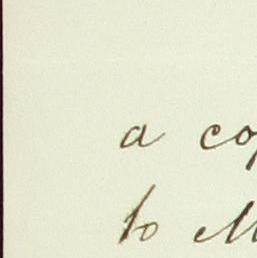 a co
to M